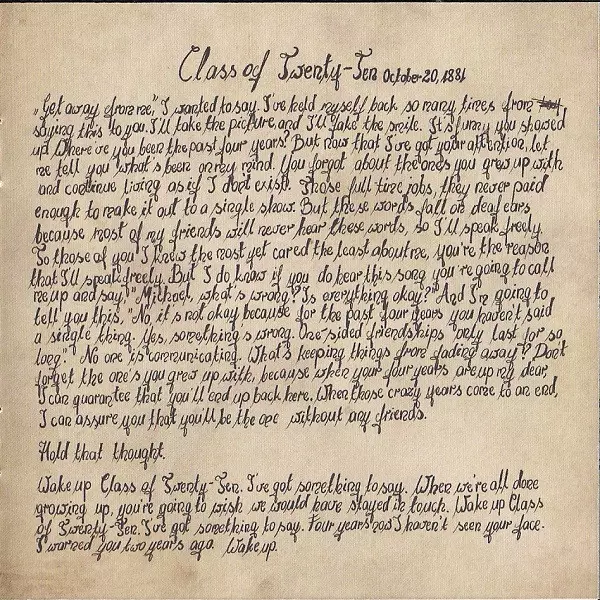 Class of Twenty-Ten October 20, 1881
„Get away from me", I wanted to say. I've held myself back so many times from
saying this to you. I'll take the picture, and I'll fake the smile. It's funny you showed
up. Where've you been the past four years? But now that I've got your attention, let
me tell you what's been on my mind. You forgot about the ones you grew up with
and continue living as if I don't exist. Those full time jobs, they never paid
enough to make it out to a single show. But these words fall on deaf ears
because most of my friends will never hear these words, so I'll speak freely.
To those of you I knew the most yet cared the least about me, you're the reason
that I'll speak freely. But I do know if you do hear this song you're going to call
me up and say, "Michael, what's wrong? Is everything okay?" And I'm going to
tell you this, "No, it's not okay, because for the past four years you haven't said
a single thing. Yes, something's wrong. One-sided friendships only last for so
long." No one is communicating. What's keeping things from fading away? Don't
forget the one's you grew up with, because when your four years are up my dear,
I can guarantee that you'll end up back here. When those crazy years come to an end,
I can assure you that you'll be the one without any friends.
Hold that thought.
Wake up Class of Twenty-Ten. I've got something to say. When we're all done
growing up, you're going to wish we would have stayed in touch. Wake up Class
of Twenty-Ten. I've got something to say. Four years now I haven't seen your face.
I warned you two years ago. Wake up.